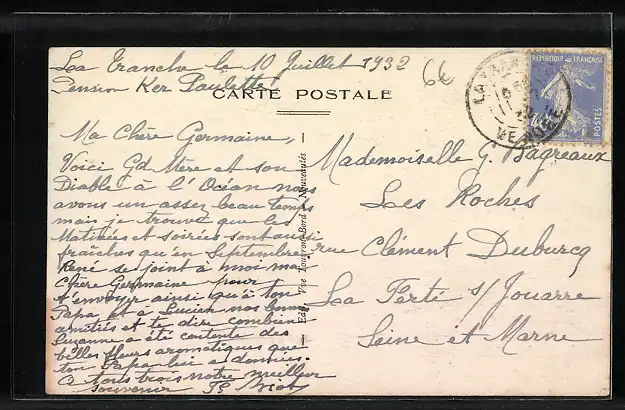 La Tranche le 10 Juillet 1932
Pension Ker Paulette
64
CARTE POSTALE
LA TRANCHE
VENDÉE
REPUBLIQUE FRANÇAISE
POSTES
Ma Chère Germaine,
Voici Gd Mère et son
Diable à l'Océan nous
avons un assez beau temps
mais je trouve que les
Matinées et soirées sont aussi
fraîches qu'en Septembre.
René se joint à moi ma
Chère Germaine pour
t'envoyer ainsi qu'à ton
Papa et à Lucien nos bonnes
amitiés et te dire combien
Suzanne a été contente des
belles fleurs aromatiques que
ton Papa lui a données.
A tous trois notre meilleur
souvenir
Edit. Vve Bord Nouveautés
Mademoiselle G. Bagreaux
Les Roches
rue Clément Duburcq
La Ferté s/ Jouarre
Seine et Marne